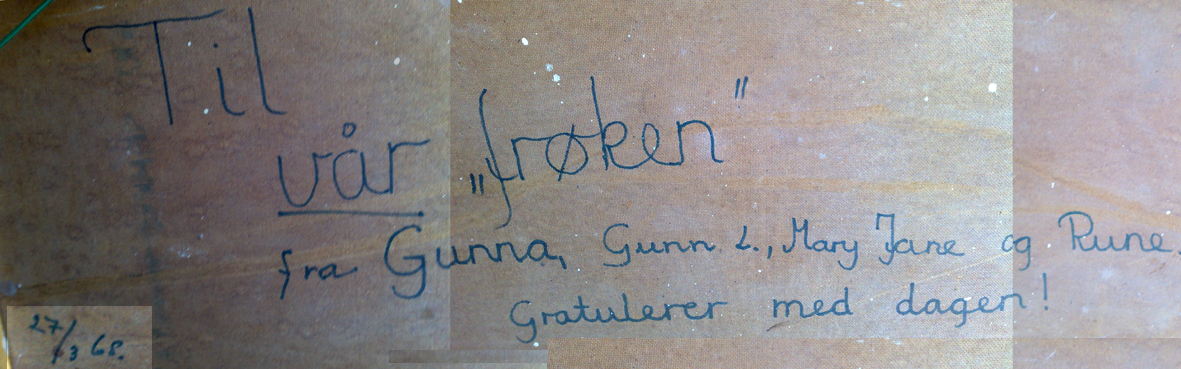 Til
vår „frøken"
fra Gunna, Gunn L., Mary Jane og Rune.
Gratulerer med dagen!
27/3 65.